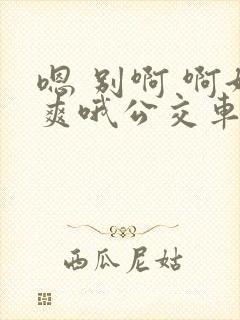 嗯 别啊 啊好
爽哦公交车
西瓜尼姑